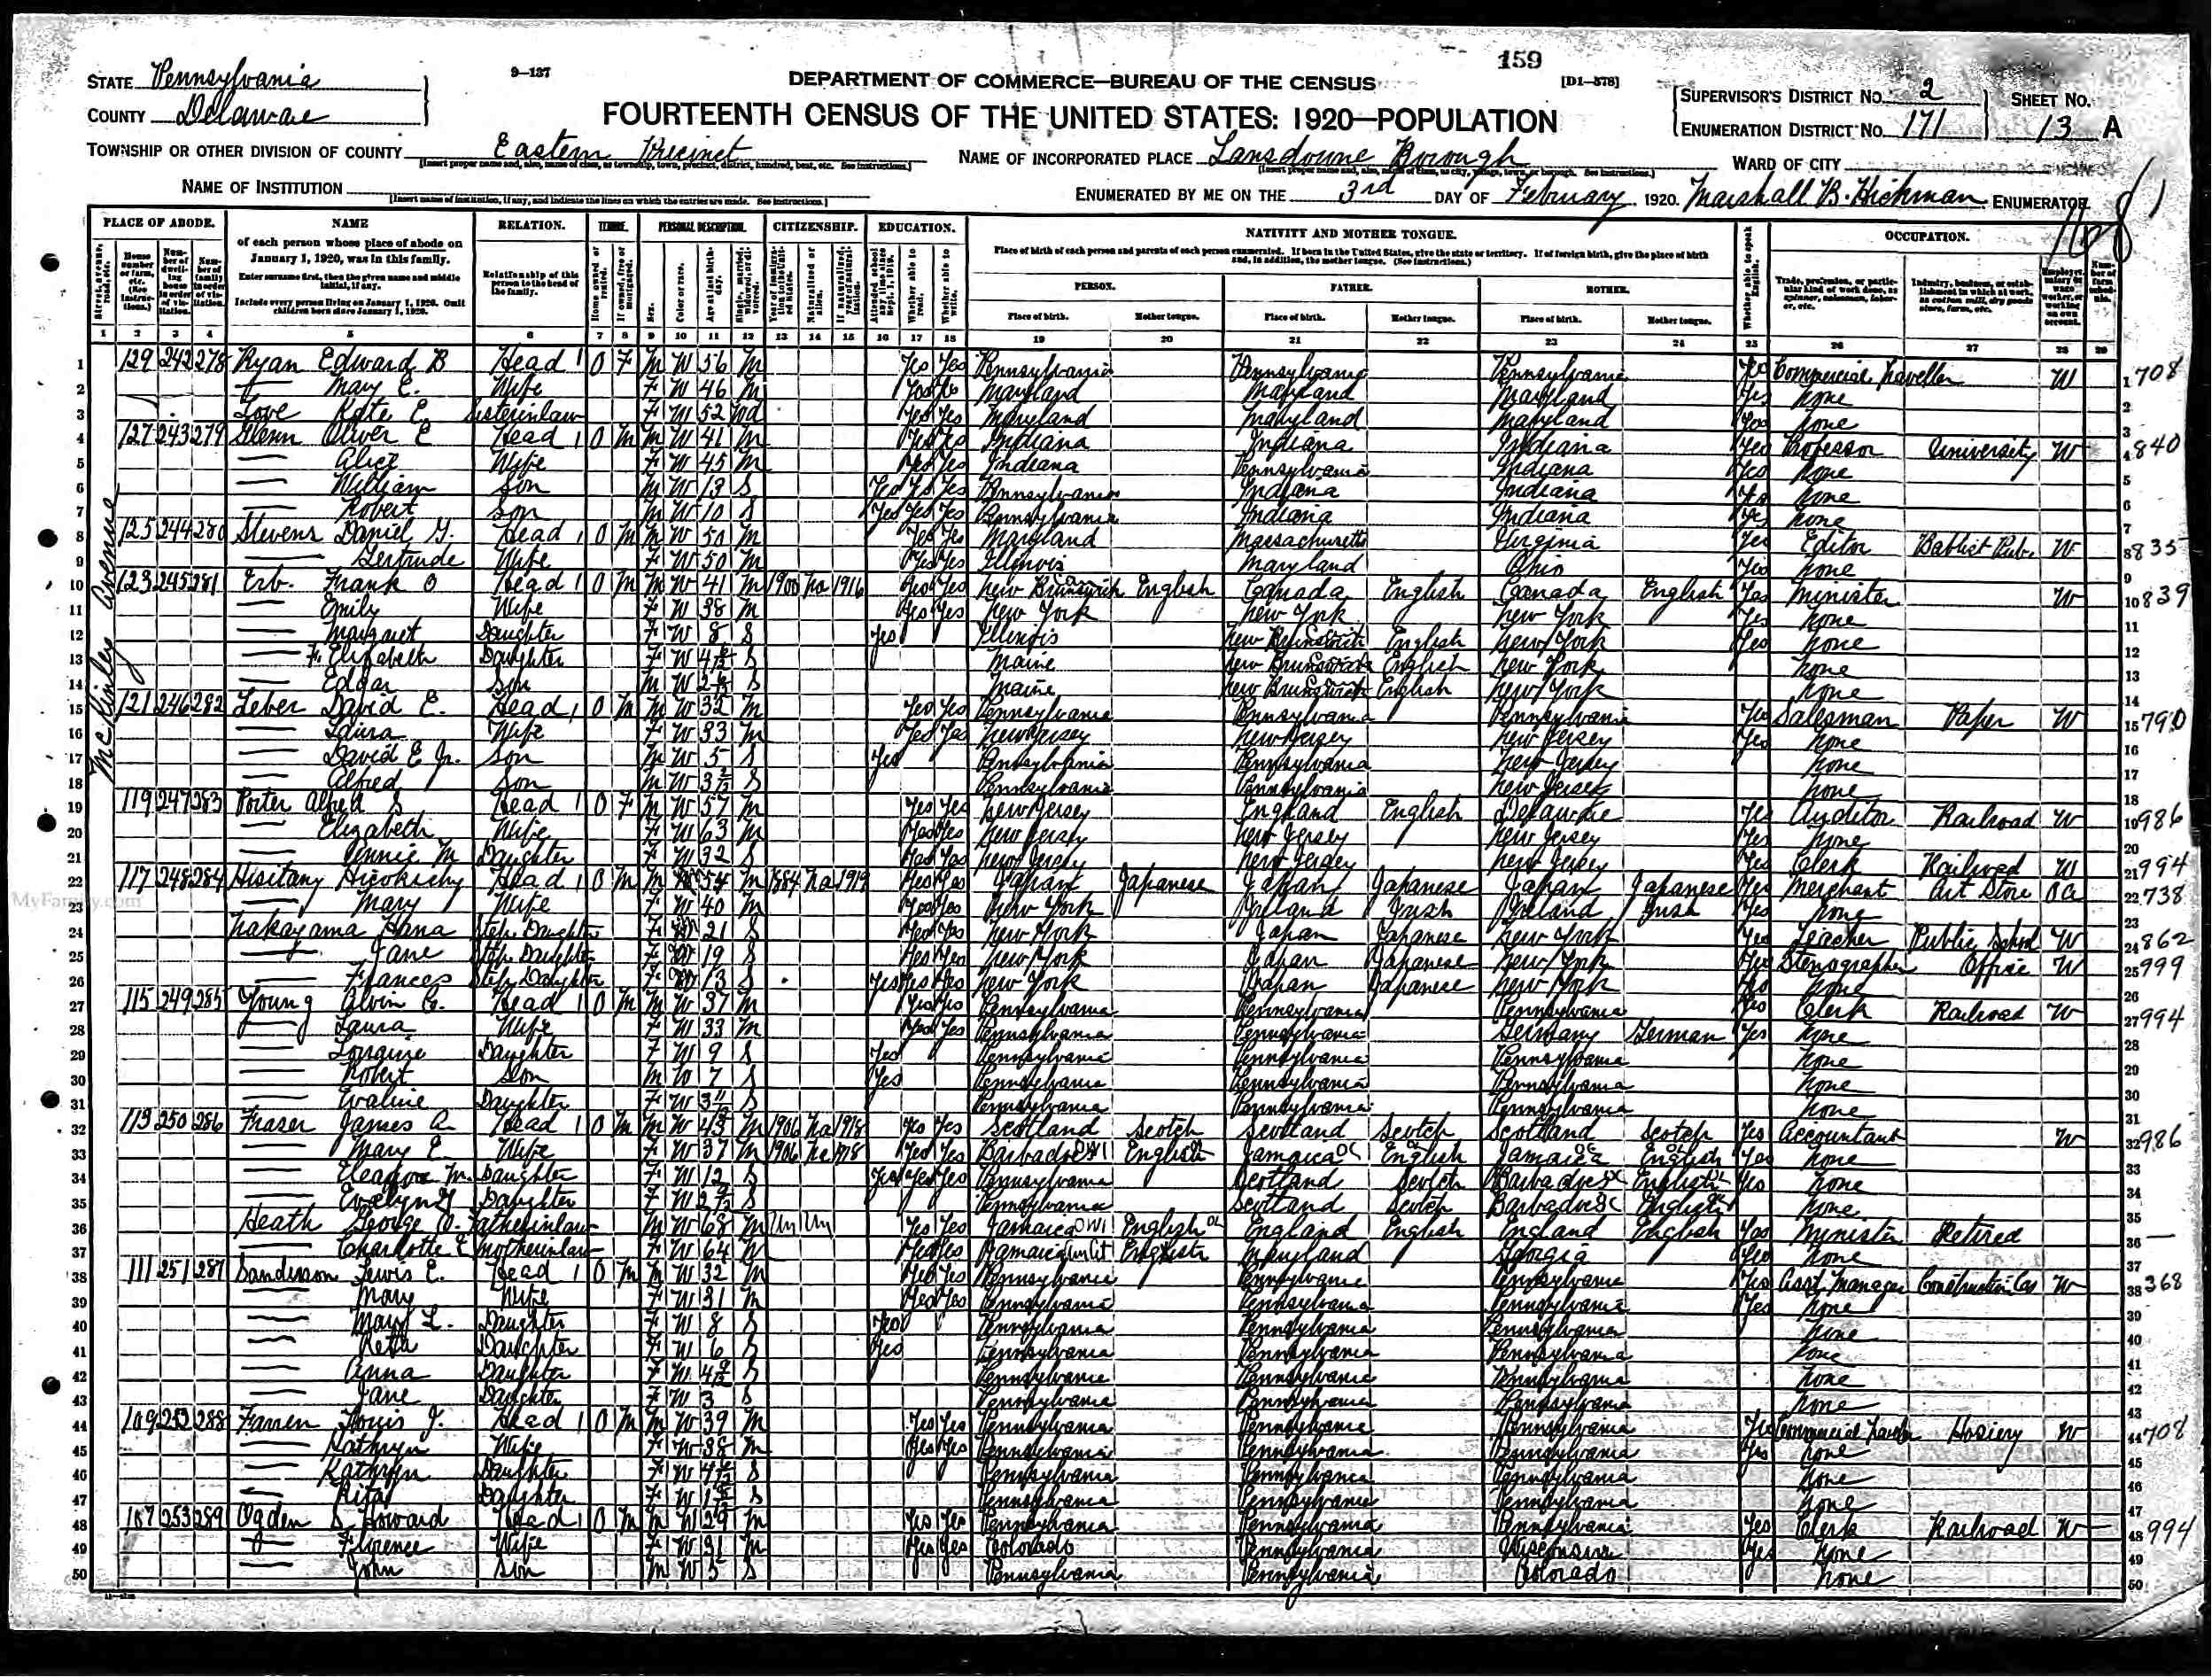 159
STATE Pennsylvania
9-137
DEPARTMENT OF COMMERCE—BUREAU OF THE CENSUS
[D1-578]
COUNTY Delaware
FOURTEENTH CENSUS OF THE UNITED STATES: 1920—POPULATION
SUPERVISOR'S DISTRICT No. 2 SHEET No.
ENUMERATION DISTRICT No. 171 13 A
TOWNSHIP OR OTHER DIVISION OF COUNTY Eastern Precinct NAME OF INCORPORATED PLACE Lansdowne Borough WARD OF CITY
NAME OF INSTITUTION
ENUMERATED BY ME ON THE 3rd DAY OF February, 1920. Marshall B. Hickman ENUMERATOR
PLACE OF ABODE. NAME RELATION. TENURE. PERSONAL DESCRIPTION. CITIZENSHIP. EDUCATION. NATIVITY AND MOTHER TONGUE. OCCUPATION.
of each person whose place of abode on January 1, 1920, was in this family.
Enter surname first, then the given name and middle initial, if any.
Include every person living on January 1, 1920. Omit children born since January 1, 1920.
Relationship of this person to the head of the family.
Place of birth of each person and parents of each person enumerated. If born in the United States, give the state or territory. If of foreign birth, give the place of birth and, in addition, the mother tongue. (See Instructions.)
PERSON. FATHER. MOTHER.
Place of birth. Mother tongue. Place of birth. Mother tongue. Place of birth. Mother tongue.
1 2 3 4 5 6 7 8 9 10 11 12 13 14 15 16 17 18 19 20 21 22 23 24 25 26 27 28 29
McKinley Avenue
1 129 242 278 Ryan Edward B Head 1 O F M W 56 M Yes Yes Pennsylvania Pennsylvania Pennsylvania Yes Commercial Traveller W 1 708
2 Mary E. Wife F W 46 M Yes Yes Maryland Maryland Maryland Yes None 2
3 Love Kate E Sisterinlaw F W 52 Wd Yes Yes Maryland Maryland Maryland Yes None 3
4 127 243 279 Glenn Oliver E Head 1 O M M W 41 M Yes Yes Indiana Indiana Indiana Yes Professor University W 4 840
5 Alice Wife F W 45 M Yes Yes Indiana Pennsylvania Indiana Yes None 5
6 William Son M W 13 S Yes Yes Yes Pennsylvania Indiana Indiana Yes None 6
7 Robert Son M W 10 S Yes Yes Yes Pennsylvania Indiana Indiana Yes None 7
8 125 244 280 Stevens Daniel G. Head 1 O M M W 50 M Yes Yes Maryland Massachusetts Virginia Yes Editor Babtist Pub. W 8 835
9 Gertrude Wife F W 50 M Yes Yes Illinois Maryland Ohio Yes None 9
10 123 245 281 Erb Frank O Head 1 O M M W 41 M 1900 Na 1916 Yes Yes New Brunswick English Canada English Canada English Yes Minister W 10 839
11 Emily Wife F W 38 M Yes Yes New York New York New York Yes None 11
12 Margaret Daughter F W 8 S Yes Illinois New Brunswick English New York Yes None 12
13 F. Elizabeth Daughter F W S Maine New Brunswick English New York None 13
14 Edgar Son M W S Maine New Brunswick English New York None 14
15 121 246 282 Leber David E. Head 1 O M M W 32 M Yes Yes Pennsylvania Pennsylvania Pennsylvania Yes Salesman Paper W 15 790
16 Laura Wife F W 33 M Yes Yes New Jersey New Jersey New Jersey Yes None 16
17 David E Jr. Son M W 5 S Yes Pennsylvania Pennsylvania New Jersey None 17
18 Alfred Son M W S Pennsylvania Pennsylvania New Jersey None 18
19 119 247 283 Porter Alfred S Head 1 O F M W 57 M Yes Yes New Jersey England English Delaware Yes Auditor Railroad W 19 986
20 Elizabeth Wife F W 63 M Yes Yes New Jersey New Jersey New Jersey Yes None 20
21 Daughter F W 32 S Yes Yes New Jersey New Jersey New Jersey Yes Clerk Railroad W 21 994
22 117 248 284 Hisitany Hirokichy Head 1 O M M 54 M 1884 Na 1919 Yes Yes Japan Japanese Japan Japanese Japan Japanese Yes Merchant Art Store OA 22 738
23 Mary Wife F W 40 M Yes Yes New York Ireland Irish Ireland Irish Yes None 23
24 Nakayama Hana Step Daughter F 21 S Yes Yes New York Japan Japanese New York Yes Teacher Public School W 24 862
25 Jane Step Daughter F 19 S Yes Yes New York Japan Japanese New York Yes Stenographer Office W 25 999
26 Frances Step Daughter F 13 S Yes Yes Yes New York Japan Japanese New York Yes None 26
27 115 249 285 Young Alvin G. Head 1 O M M W 37 M Yes Yes Pennsylvania Pennsylvania Pennsylvania Yes Clerk Railroad W 27 994
28 Laura Wife F W 33 M Yes Yes Pennsylvania Pennsylvania Germany German Yes None 28
29 Lorraine Daughter F W 9 S Yes Pennsylvania Pennsylvania Pennsylvania None 29
30 Robert Son M W 7 S Yes Pennsylvania Pennsylvania Pennsylvania None 30
31 Evaline Daughter F W S Pennsylvania Pennsylvania Pennsylvania None 31
32 113 250 286 Fraser James A. Head 1 O M M W 43 M 1906 Na 1918 Yes Yes Scotland Scotch Scotland Scotch Scotland Scotch Yes Accountant W 32 986
33 Mary E. Wife F W 37 M 1906 Na 1918 Yes Yes Barbados English Jamaica English Jamaica English Yes None 33
34 Eleanor M. Daughter F W 12 S Yes Yes Yes Pennsylvania Scotland Scotch Barbados English Yes None 34
35 Evelyn Daughter F W S Pennsylvania Scotland Scotch Barbados English None 35
36 Heath George O. Fatherinlaw M W 68 M Un Un Yes Yes Jamaica English England English England English Yes Minister Retired 36
37 Charlotte E Motherinlaw F W 64 M Yes Yes Jamaica English Maryland Georgia Yes None 37
38 111 251 287 Sanderson Lewis E. Head 1 O M M W 32 M Yes Yes Pennsylvania Pennsylvania Pennsylvania Yes Asst Manager Construction Co W 38 368
39 Mary Wife F W 31 M Yes Yes Pennsylvania Pennsylvania Pennsylvania Yes None 39
40 Mary L. Daughter F W 8 S Yes Pennsylvania Pennsylvania Pennsylvania None 40
41 Reta Daughter F W 6 S Yes Pennsylvania Pennsylvania Pennsylvania None 41
42 Anna Daughter F W S Pennsylvania Pennsylvania Pennsylvania None 42
43 Jane Daughter F W 3 S Pennsylvania Pennsylvania Pennsylvania None 43
44 109 252 288 Farren Louis J. Head 1 O M M W 39 M Yes Yes Pennsylvania Pennsylvania Pennsylvania Yes Commercial Hosiery W 44 708
45 Kathryn Wife F W 38 M Yes Yes Pennsylvania Pennsylvania Pennsylvania Yes None 45
46 Kathryn Daughter F W S Pennsylvania Pennsylvania Pennsylvania None 46
47 Rita Daughter F W S Pennsylvania Pennsylvania Pennsylvania None 47
48 107 253 289 Ogden S Howard Head 1 O M M W 29 M Yes Yes Pennsylvania Pennsylvania Pennsylvania Yes Clerk Railroad W 48 994
49 Florence Wife F W 31 M Yes Yes Colorado Pennsylvania Wisconsin Yes None 49
50 John Son M W S Pennsylvania Pennsylvania Colorado None 50
MyFamily.com